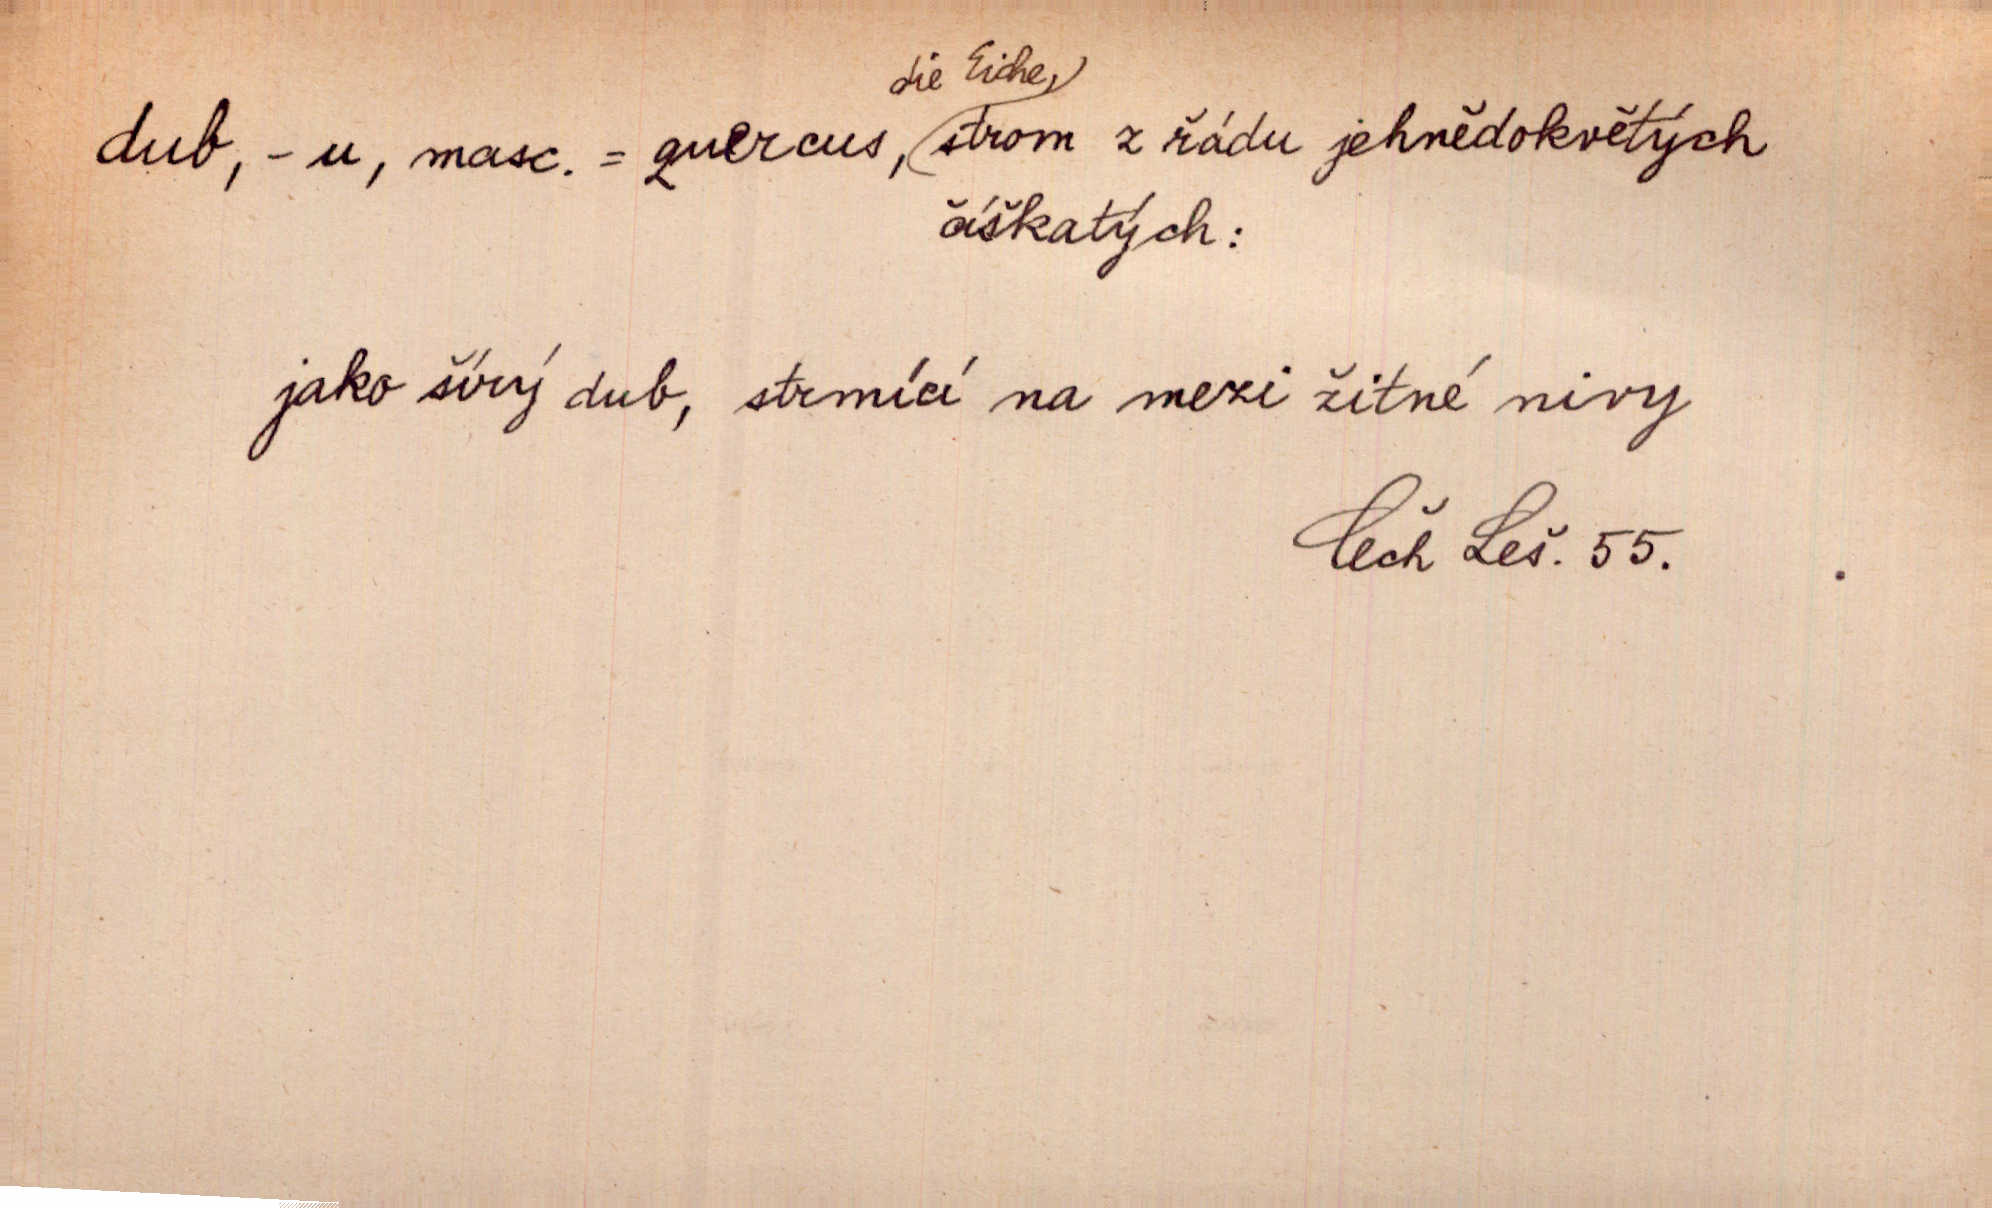 die Eiche,
dub, -u, masc. = quercus, strom z řádu jehnědokvětých
číškatých:
jako širý dub, strmící na mezi žitné nivy
Čech Leš. 55.